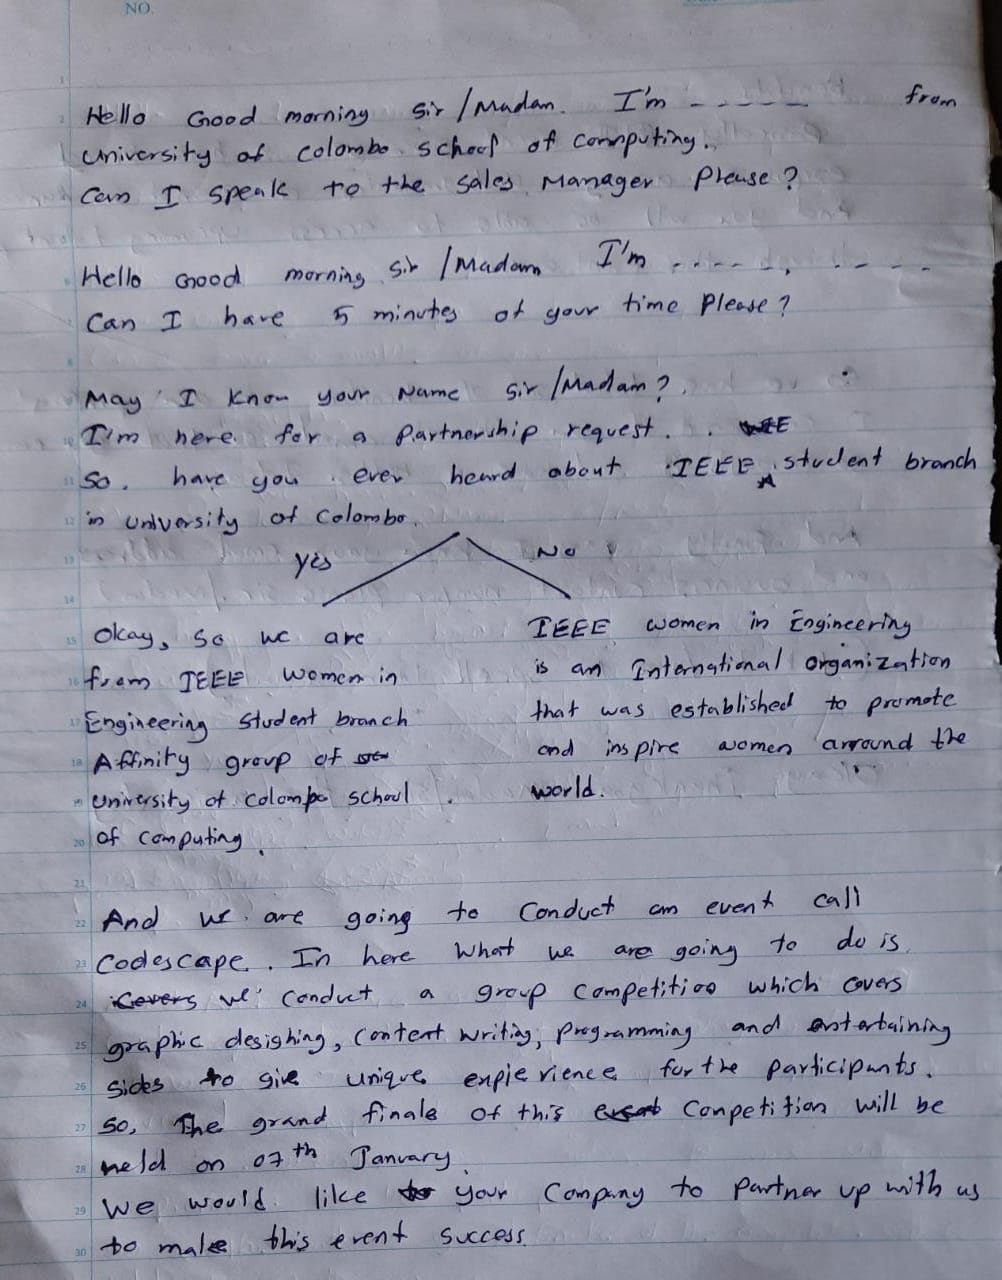 NO.
Hello Good morning Sir /Madam. I'm ------ from
University of Colombo School of Computing.
Can I speak to the Sales Manager Please?
Hello Good morning Sir /Madam I'm ------, -----
Can I have 5 minutes of your time Please?
May I know your Name Sir /Madam?
I'm here for a Partnership request. WIE
So, have you ever heard about IEEE student branch
in University of Colombo.
Yes No
Okay, So we are
from IEEE Women in
Engineering Student branch
Affinity group of
University of Colombo School
of Computing.
IEEE women in Engineering
is an International Organization
that was established to promote
and inspire women arround the
world.
And we are going to Conduct an event call
Codescape. In here What we are going to do is
we Conduct a group Competition which Covers
graphic desighing, Content writing, programming and entertaining
sides to give unique expierience for the participants.
So, The grand finale of this Competition will be
held on 07th January.
We would like your Company to Partner up with us
to make this event success.